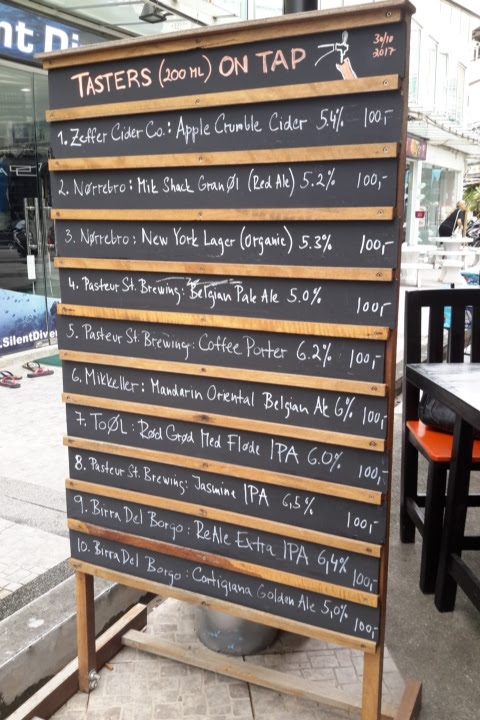 nt Dive
TASTERS (200 ML) ON TAP
30/10
2017
1. Zeffer Cider Co.: Apple Crumble Cider 5.4% 100,-
2. Nørrebro: Mik Shack GranØl (Red Ale) 5.2% 100,-
3. Nørrebro: New York Lager (Organic) 5.3% 100,-
4. Pasteur St. Brewing: Belgian Pale Ale 5.0% 100,-
5. Pasteur St. Brewing: Coffee Porter 6.2% 100,-
6. Mikkeller: Mandarin Oriental Belgian Ale 6% 100,-
7. ToØL: Rød Grød Med Fløde IPA 6.0% 100,-
8. Pasteur St. Brewing: Jasmine IPA 6,5% 100,-
9. Birra Del Borgo: ReAle Extra IPA 6,4% 100,-
10. Birra Del Borgo: Cortigiana Golden Ale 5,0% 100,-
.SilentDive